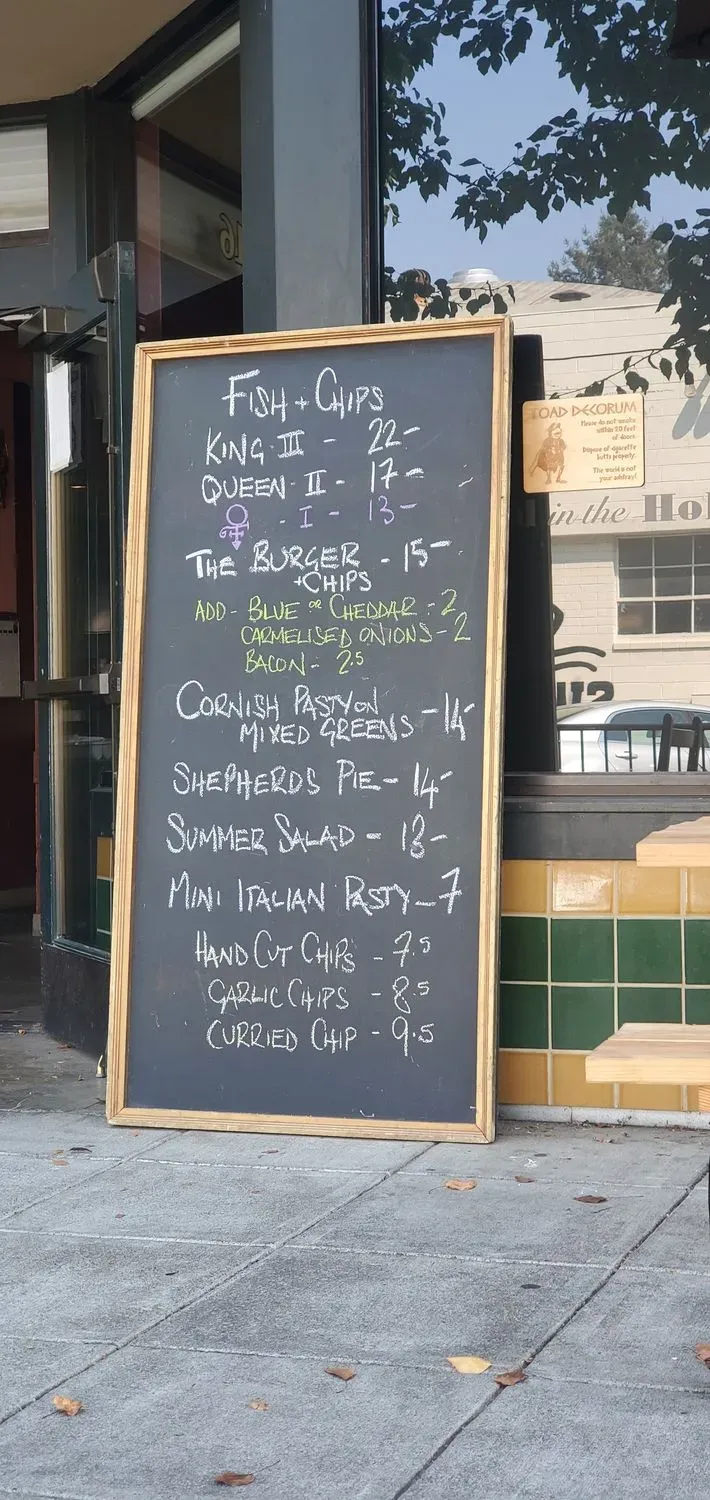 FISH + CHIPS
KING III - 22-
QUEEN - II - 17-
- I - 13-
THE BURGER - 15-
+CHIPS
ADD - BLUE OR CHEDDAR - 2
CARMELISED ONIONS - 2
BACON - 2.5
CORNISH PASTY ON
MIXED GREENS - 14-
SHEPHERDS PIE - 14-
SUMMER SALAD - 13-
MINI ITALIAN PASTY - 7
HAND CUT CHIPS - 7.5
GARLIC CHIPS - 8.5
CURRIED CHIP - 9.5
TOAD DECORUM
Please do not smoke
within 20 feet
of doors.
Dispose of cigarette
butts properly.
The world is not
your ashtray!
in the Hol